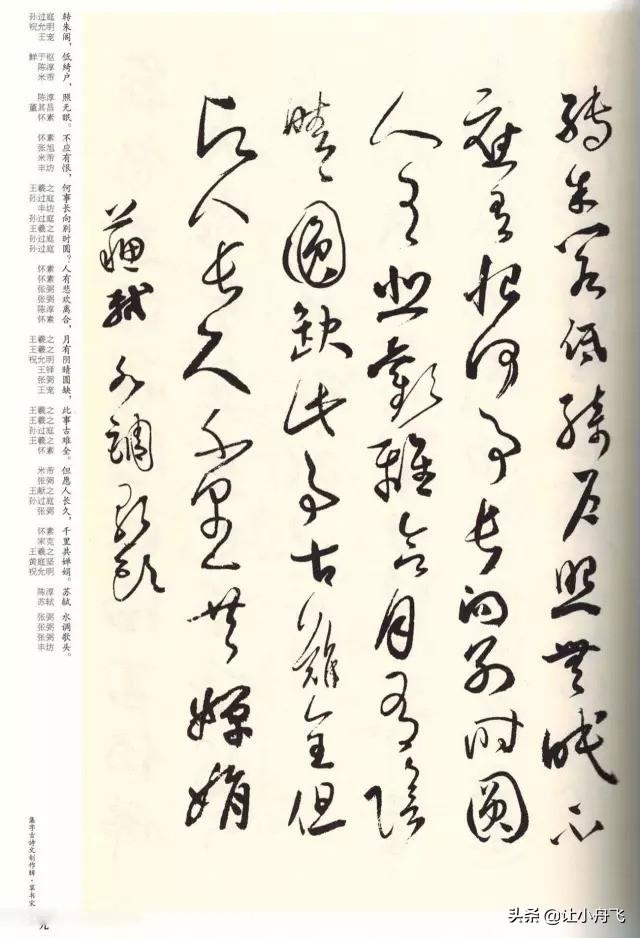 轉朱閣低綺戶照無眠不
應有恨何事長向別時圓
人有悲歡離合月有陰
晴圓缺此事古難全但
願人長久千里共嬋娟
蘇軾 水調歌頭
转朱阁，
孙过庭
祝允明
王宠
低绮户，
鲜于枢
陈淳
米芾
照无眠。
陈淳
董其昌
怀素
不应有恨，
怀素
张旭
米芾
丰坊
何事长向别时圆？
王羲之
孙过庭
丰坊
孙过庭
王羲之
孙过庭
孙过庭
人有悲欢离合，
怀素
怀素
张弼
张弼
陈淳
怀素
月有阴晴圆缺，
王羲之
王羲之
祝允明
王铎
张弼
王宠
此事古难全。
王羲之
王羲之
孙过庭
王羲之
怀素
但愿人长久，
米芾
张弼
王献之
孙过庭
张弼
千里共婵娟。
怀素
宋克
王羲之
黄庭坚
祝允明
苏轼
陈淳
苏轼
水调歌头。
张弼
张弼
张弼
丰坊
集字古诗文创作辑·草书宋
九
头条 @让小舟飞